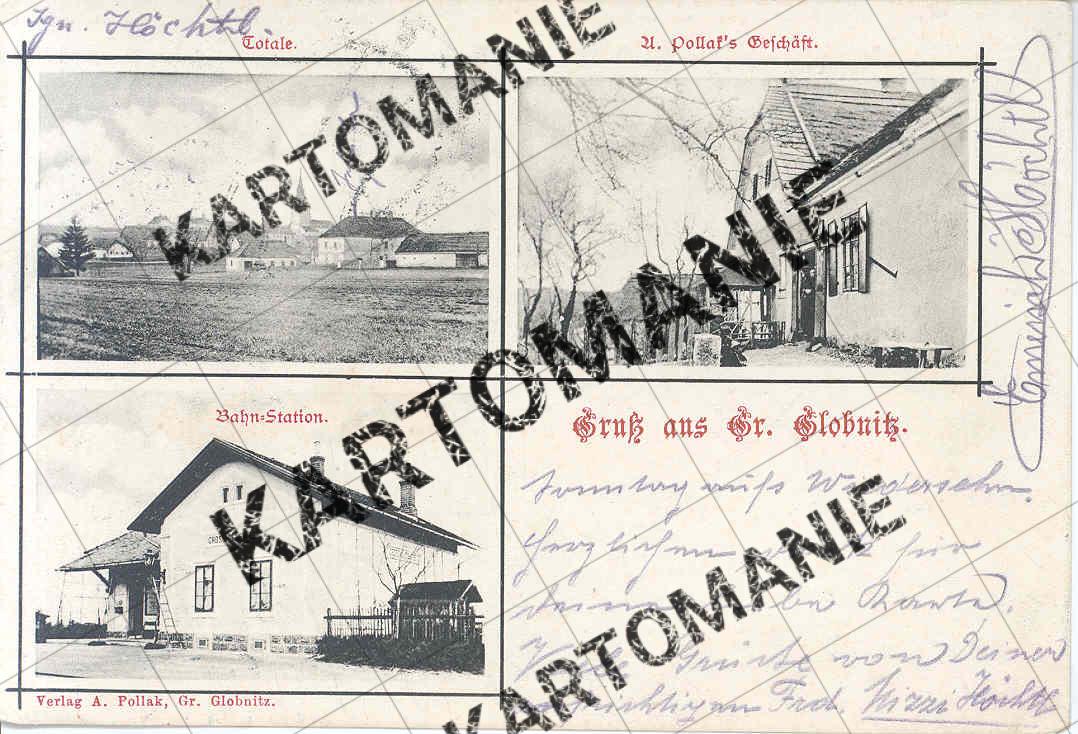 Ign. Höchtl.
Totale.
A. Pollak's Geschäft.
Bahn=Station.
GROS
Gruß aus Gr. Globnitz.
Sonntag aufs Wiedersehn.
Herzlichen für
deine Karte.
Viele Grüße von Deiner
aufrichtigen Frd. Mizzi Höchtl
Höchtl
Verlag A. Pollak, Gr. Globnitz.
KARTOMANIE
KARTOMANIE
KARTOMANIE
KARTOMANIE